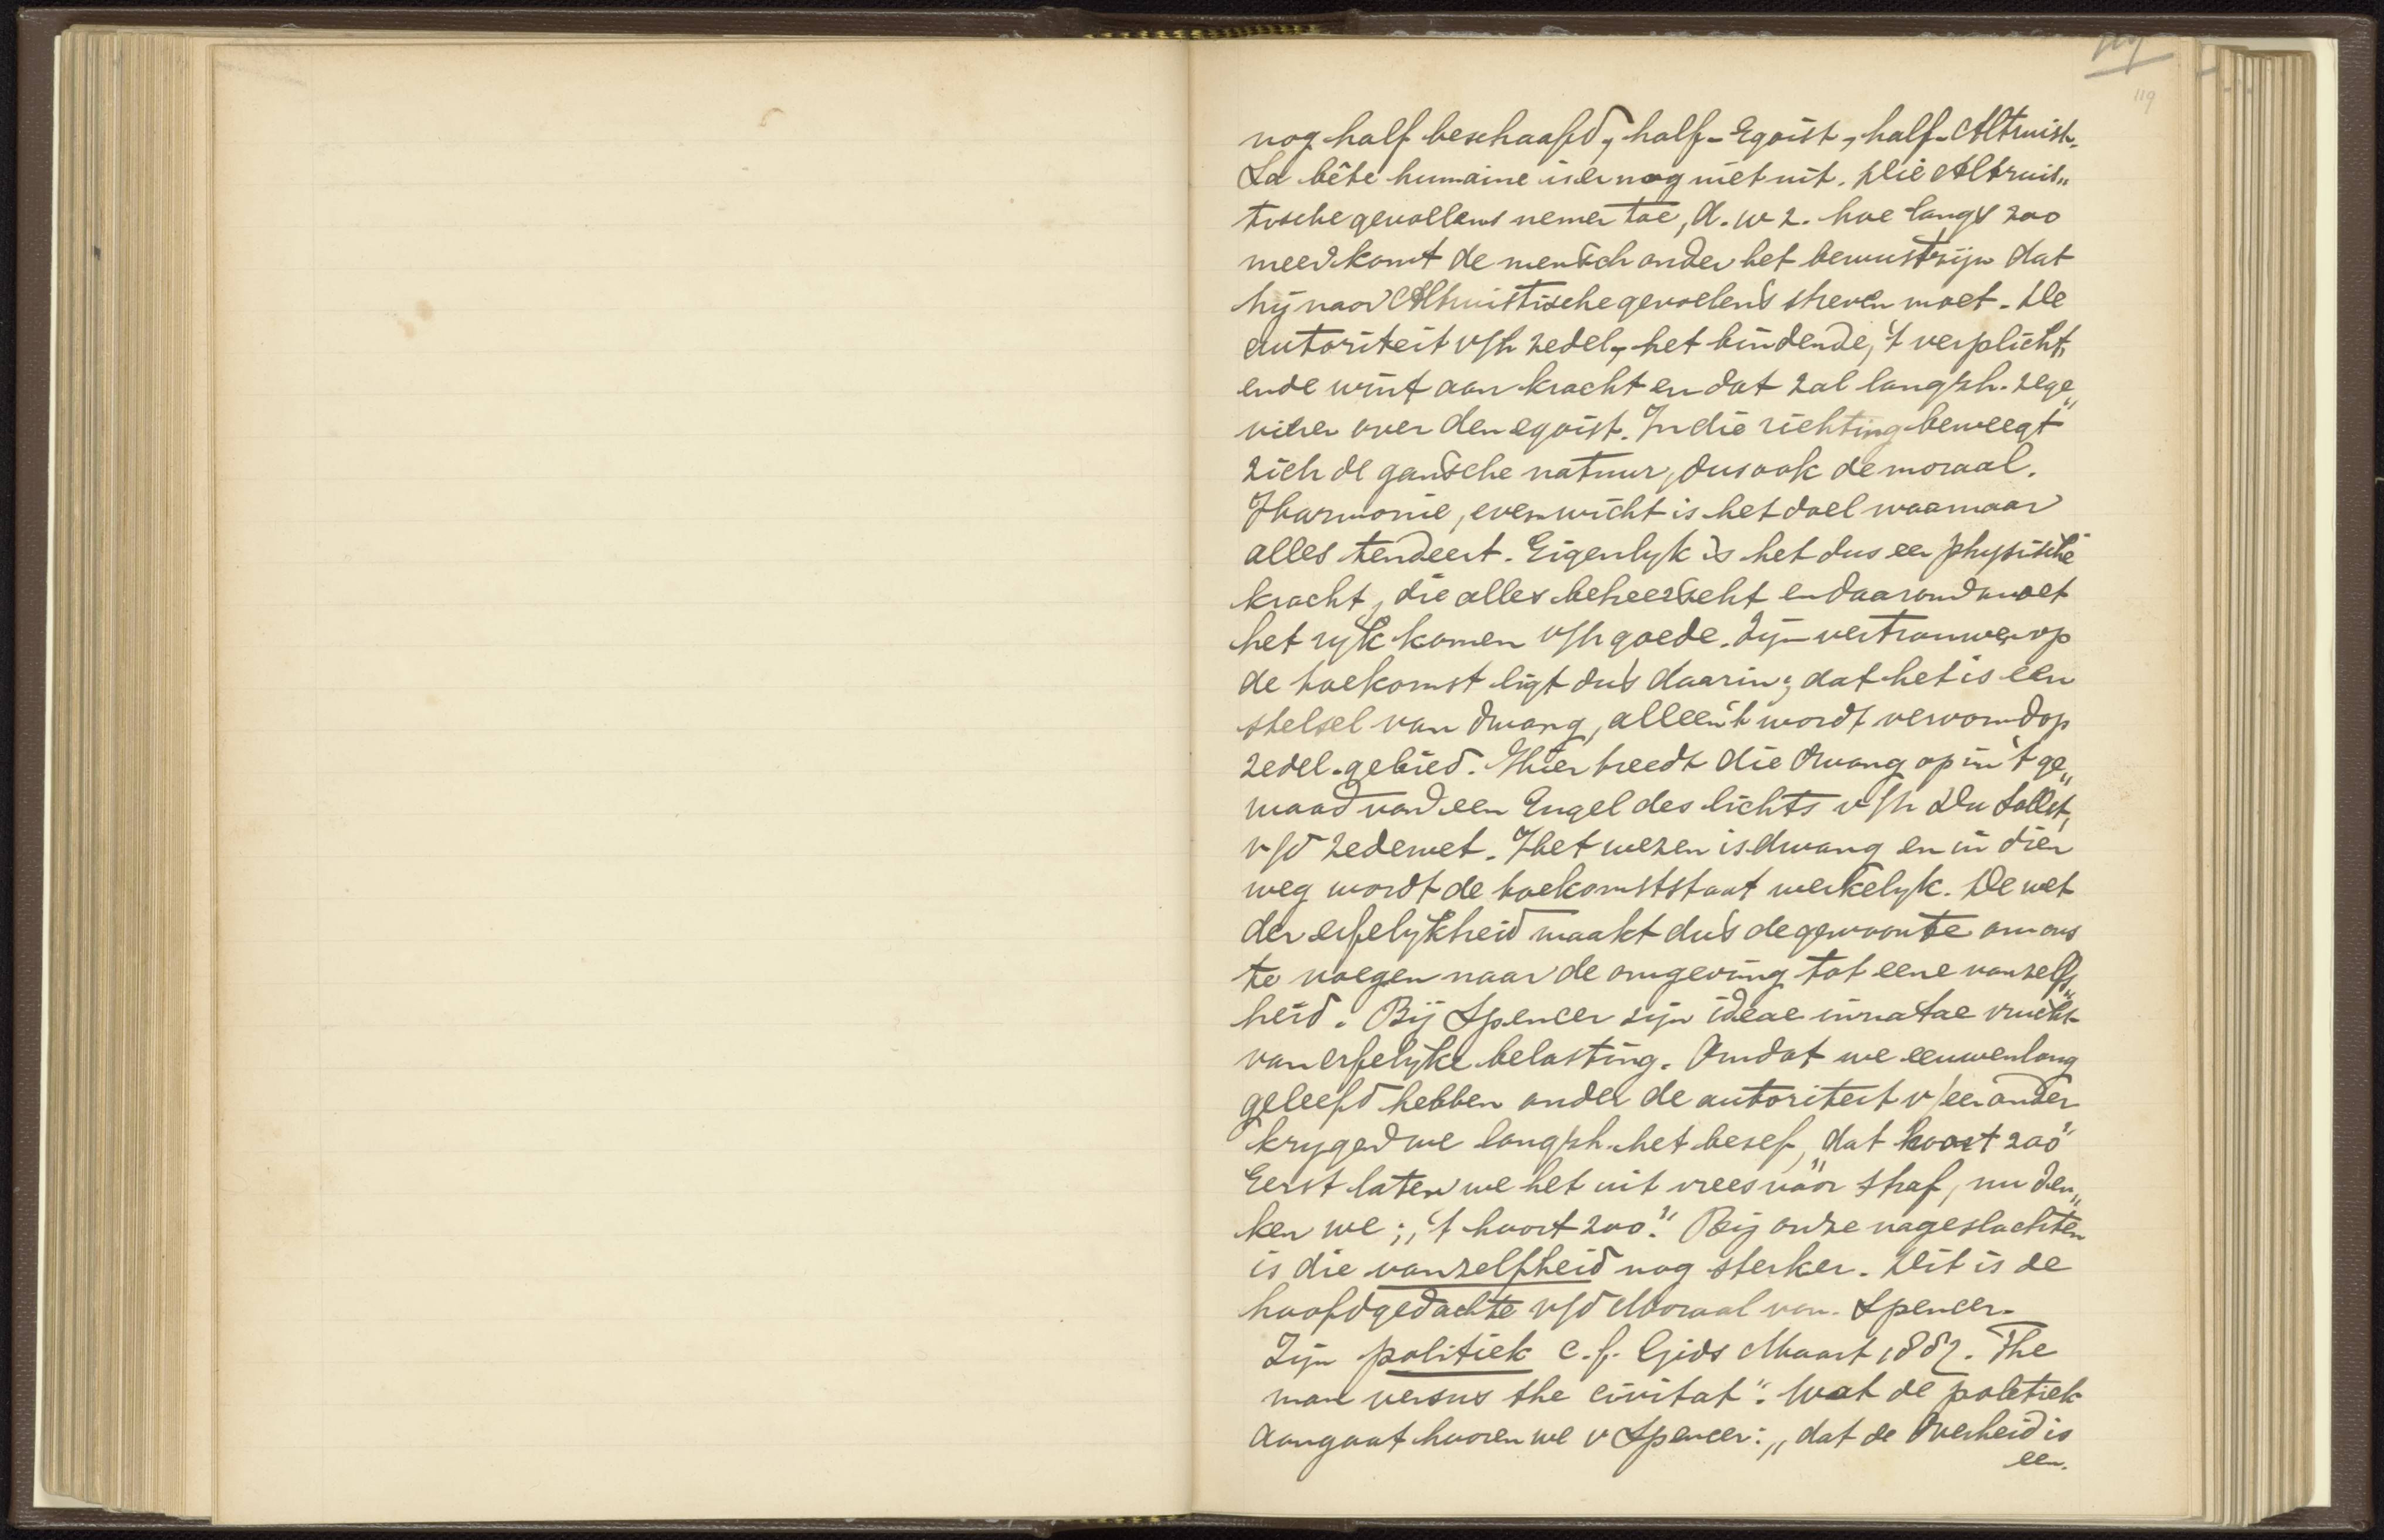 119
nog half beschaafd, half-Egoist, half-Altruist.
La bête humaine is er nog niet uit. Die Altruis„
tische gevoelens nemen toe, d.w.z. hoe langer zoo
meer komt de mensch onder het bewustzijn dat
hij naar Altruistische gevoelens streven moet. De
autoriteit v/h zedel., het bindende, 't verplicht„
ende wint aan kracht en dat zal langzh. zege„
vieren over den egoist. In die richting beweegt
zich de gansche natuur, dus ook de moraal.
Harmonie, evenwicht is het doel waarnaar
alles tendeert. Eigenlyk is het dus een physische
kracht, die alles beheerscht en daarom moet
het ryk komen v/h goede. Zijn vertrouwen op
de toekomst ligt dus daarin, dat het is een
stelsel van dwang, alleen 't wordt vervormd op
zedel. gebied. Hier treedt die dwang op in 't ge„
waad van een Engel des lichts v/h Du Sollst,
v/d zedewet. Het wezen is dwang en in dien
weg wordt de toekomststaat werkelyk. De wet
der erfelykheid maakt dus de gewoonte om ons
te voegen naar de omgeving tot eene vanzelf„
heid. Bij Spencer zijn ideae innatae vrucht
van erfelyke belasting. Omdat we eeuwenlang
geleefd hebben onder de autoriteit v/een ander
krygen we langzh. het besef, „dat hoort zoo"
Eerst laten we het uit vrees vóór straf, nu den„
ken we; „'t hoort zoo." Bij onze nageslachten
is die vanzelfheid nog sterker. Dit is de
hoofdgedachte v/d Moraal van Spencer.
Zijn politiek c.f. Gids Maart 1887. The
man versus the civitat". Wat de politiek
aangaat hooren we v Spencer: „dat de Overheid is
een.